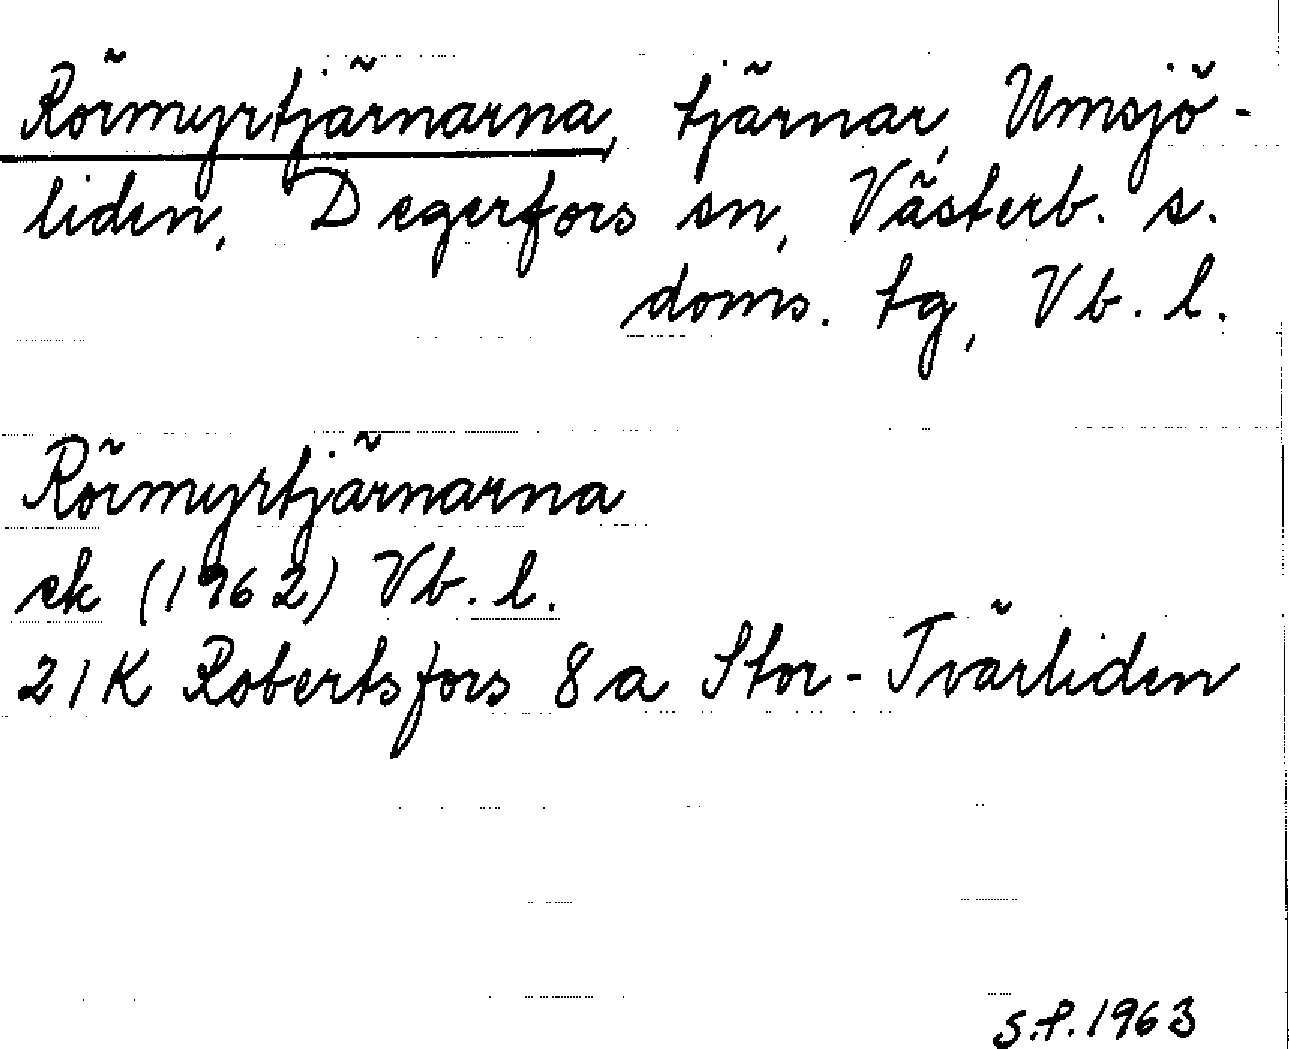 Rörmyrtjärnarna, tjärnar, Umsjö-
liden, Degerfors sn, Västerb. s.
doms. tg, Vb. l.
Rörmyrtjärnarna
ek (1962) Vb. l.
21K Robertsfors 8a Stor-Tvärliden
S.P. 1963